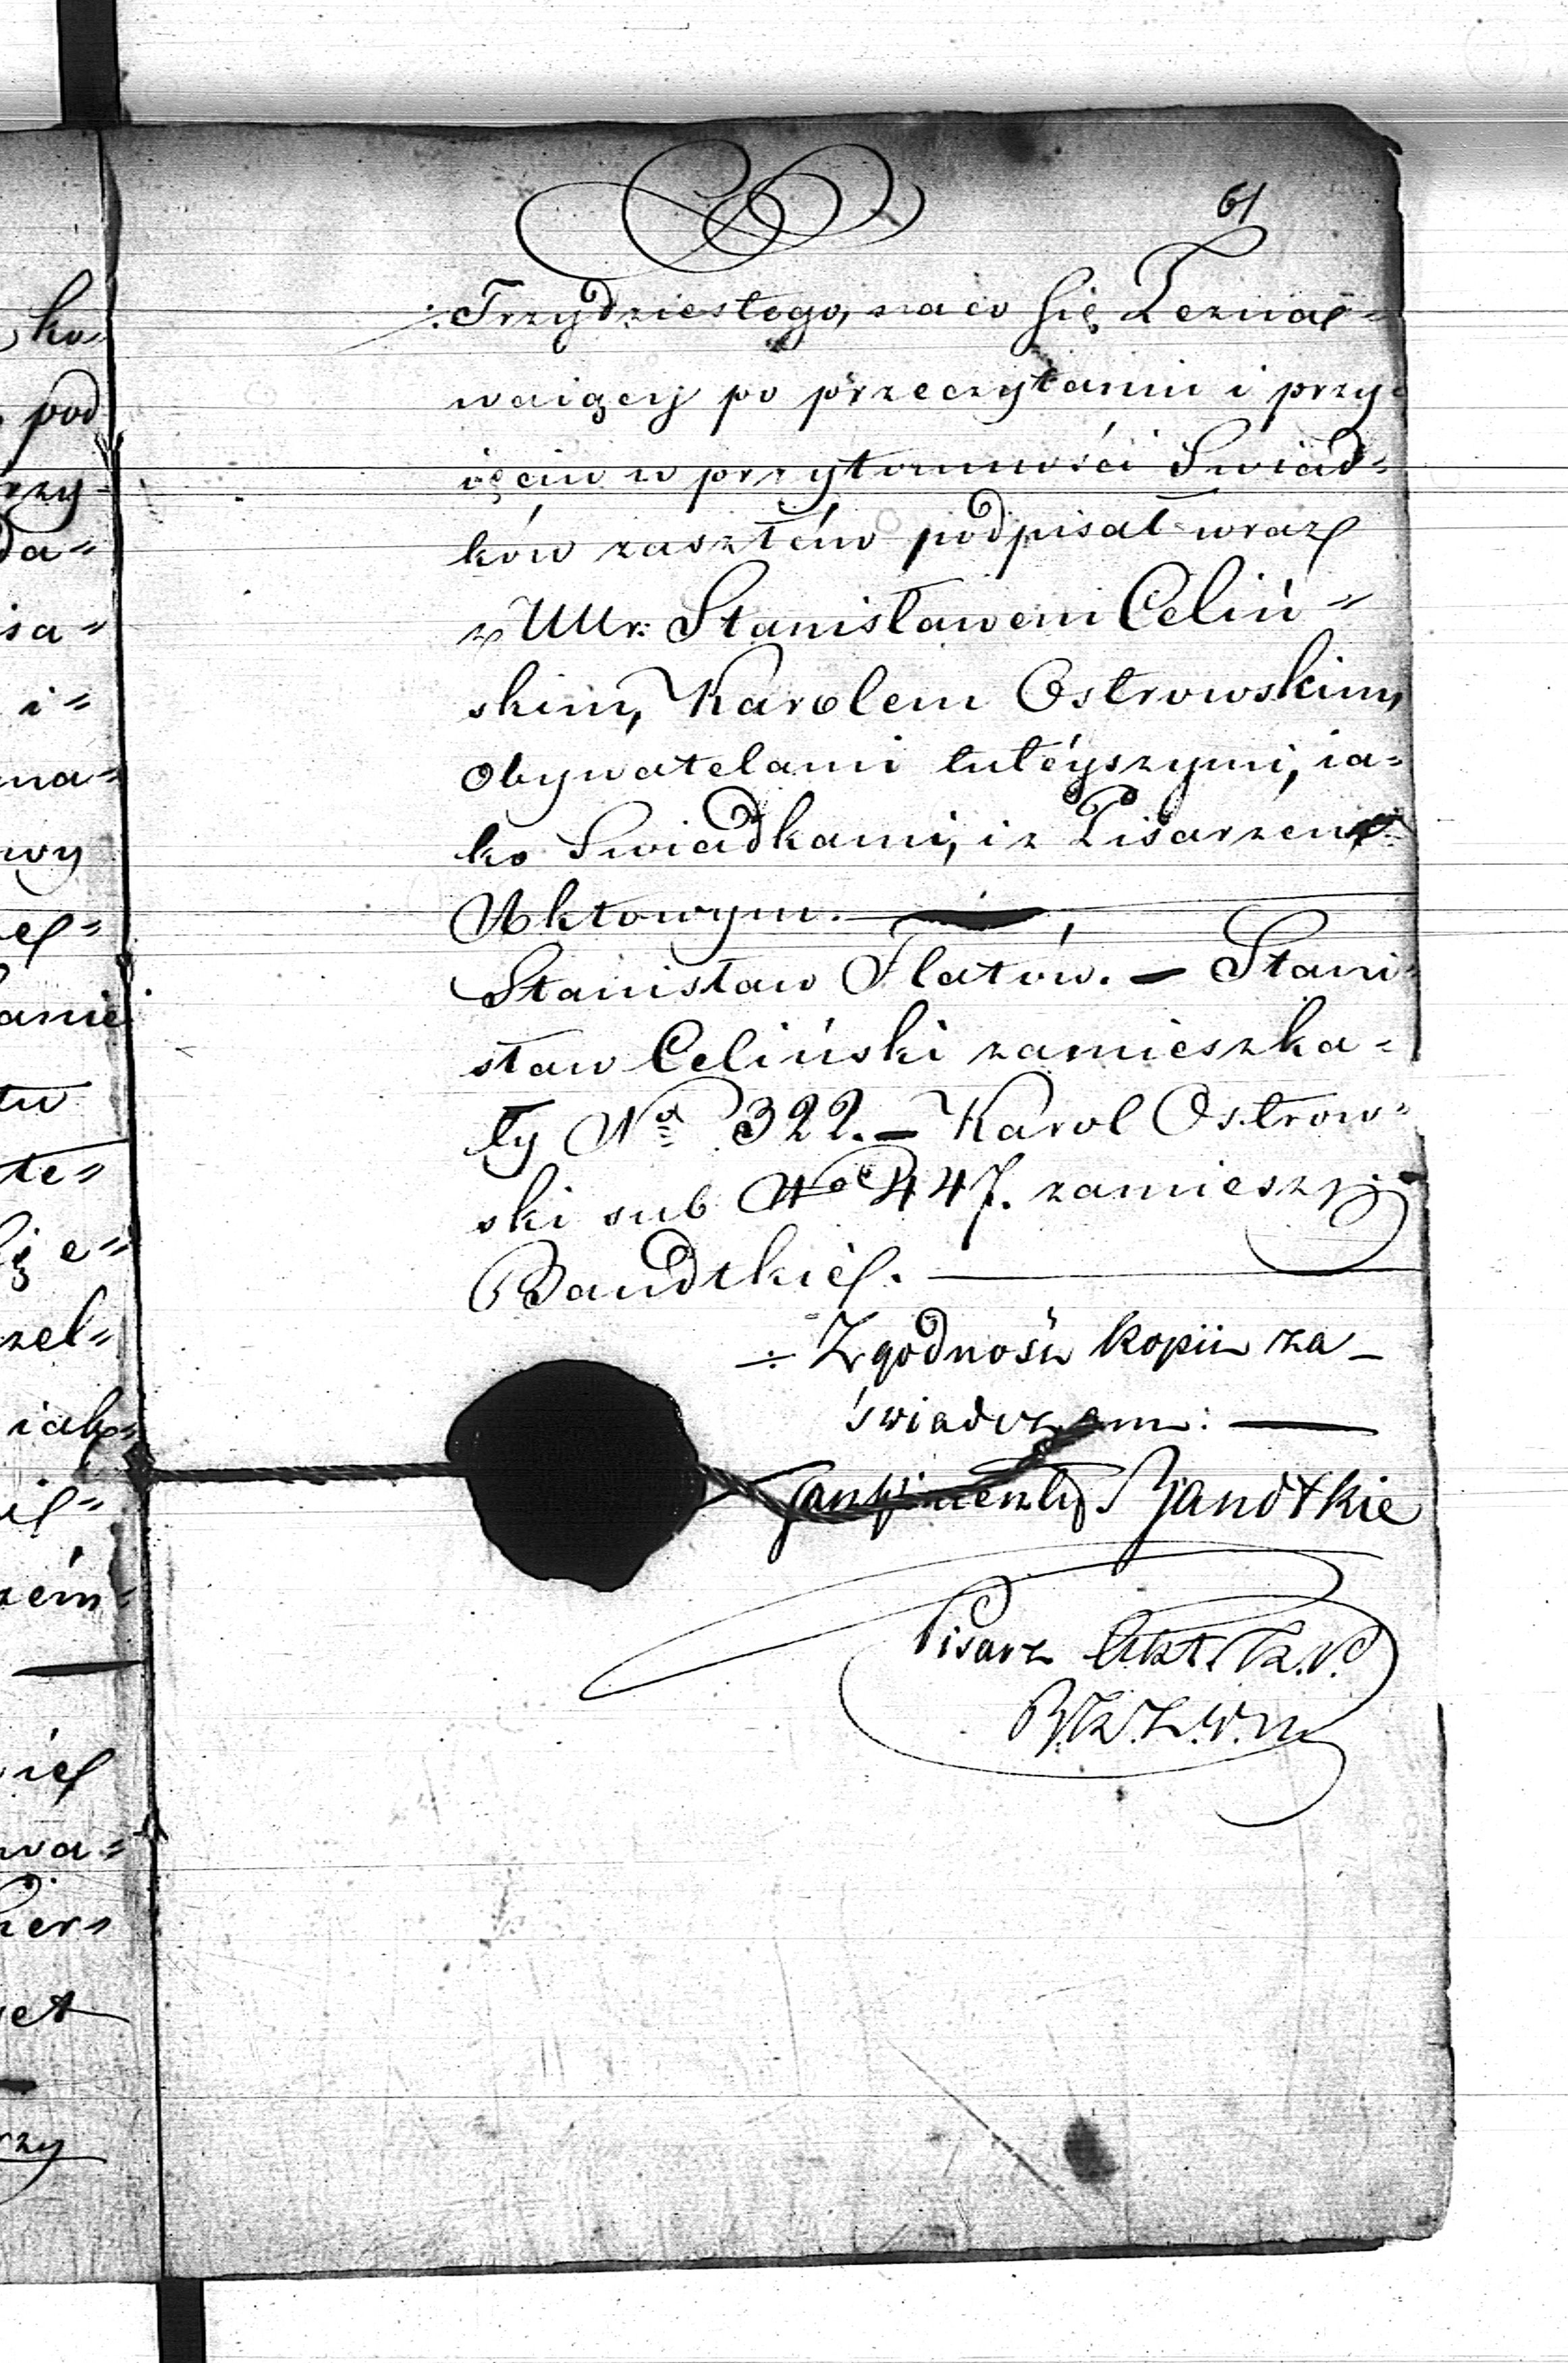 61
Trzydziestego, na co się Zezna=
waiący po przeczytaniu i przy=
ięciu w przytomności Swiad=
ków zasztéw podpisał wraz
z UUr: Stanisławem Celiń=
skim, Karolem Ostrowskim,
Obywatelami tuteyszymi, ia=
ko Swiadkami, i z Pisarzem
Aktowym.
Stanisław Flatow. — Stani=
sław Celiński zamieszka=
ły No 322. — Karol Ostrow=
ski sub No 447. zamiesz:
Bandtkie.
Zgodność kopii za_
świadczam:
Jan Wincenty Bandtkie
Pisarz Akt.
ko=
pod
rzy=
da=
isa=
i=
na=
wy
anie
tu
te=
ię e=
zel=
iak=
zém
ie
wa=
ner=
et
rzy